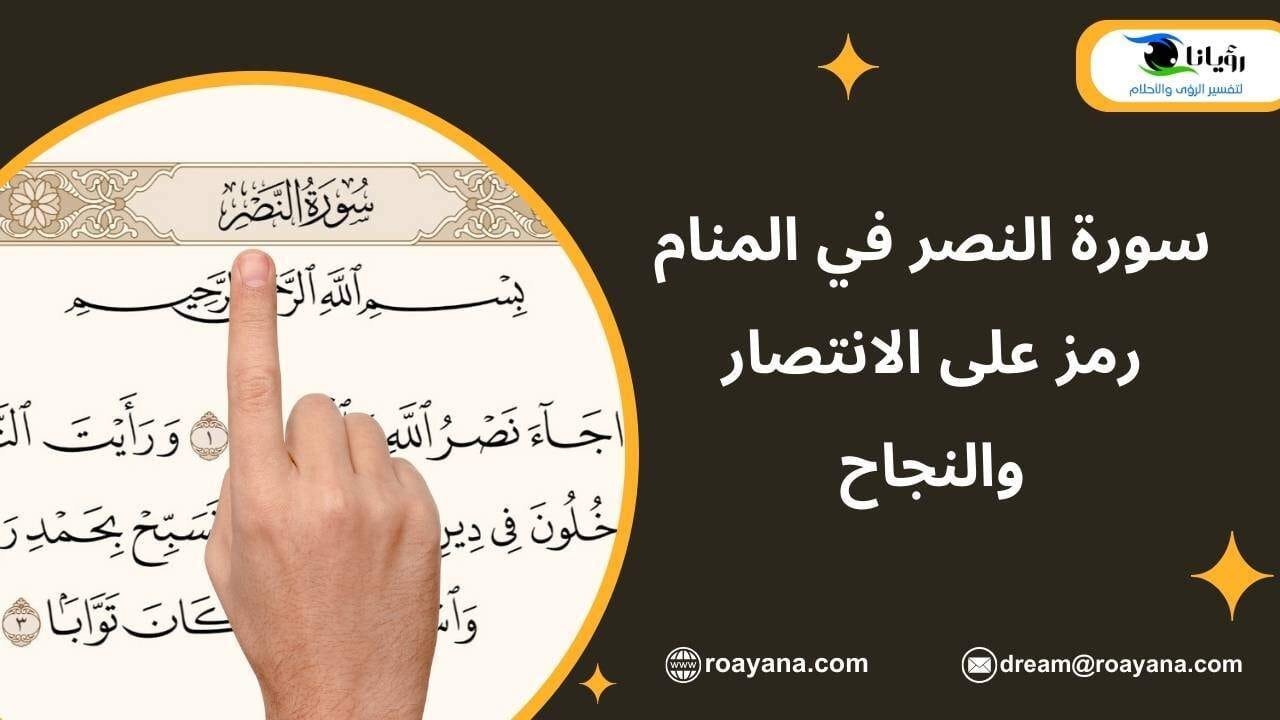 رؤيانا
لتفسير الرؤى والأحلام
سورة النصر في المنام
رمز على الانتصار
والنجاح
سُورَةُ النَّصْرِ
بِسْمِ ٱللَّهِ ٱلرَّحْ ٱلرَّحِيمِ
اجَآءَ نَصْرُ ٱللَّهِ ١ وَرَأَيْتَ
خُلُونَ فِى دِينِ فَسَبِّحْ بِحَمْدِ
كَانَ تَوَّابًۢا ٣
www roayana.com
dream@roayana.com